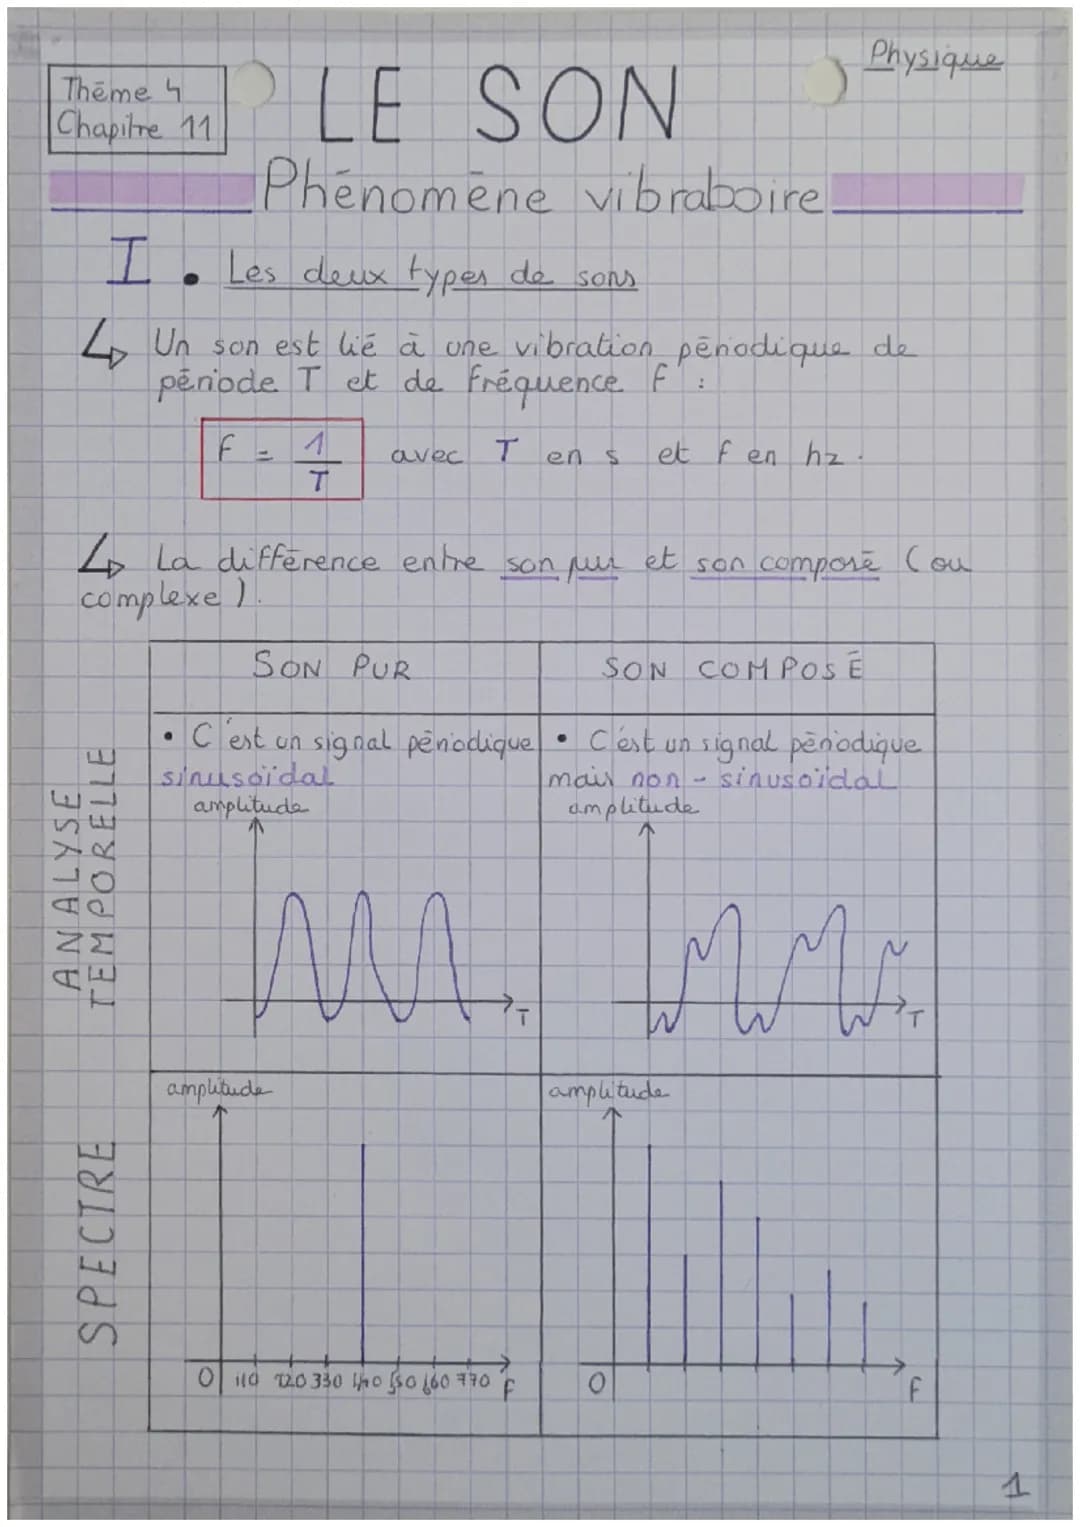 Physique
Thēme 4
Chapitre 11
LE SON
Phēnomēne vibraboire
I. Les deux types de sons
↳ Un son est lié à une vibration pēriodique de
pēriode T et de fréquence f :
f = 1/T avec T en s et f en hz.
↳ La diffērence entre son pur et son composē (ou
complexe).
SON PUR
SON COMPOSĒ
ANALYSE
TEMPORELLE
• C'est un signal pēriodique
sinusoïdal
amplitude
T
• C'est un signal pēriodique
mais non-sinusoïdal
amplitude
T
SPECTRE
amplitude
0 110 220 330 440 550 660 770 f
amplitude
0 f
1